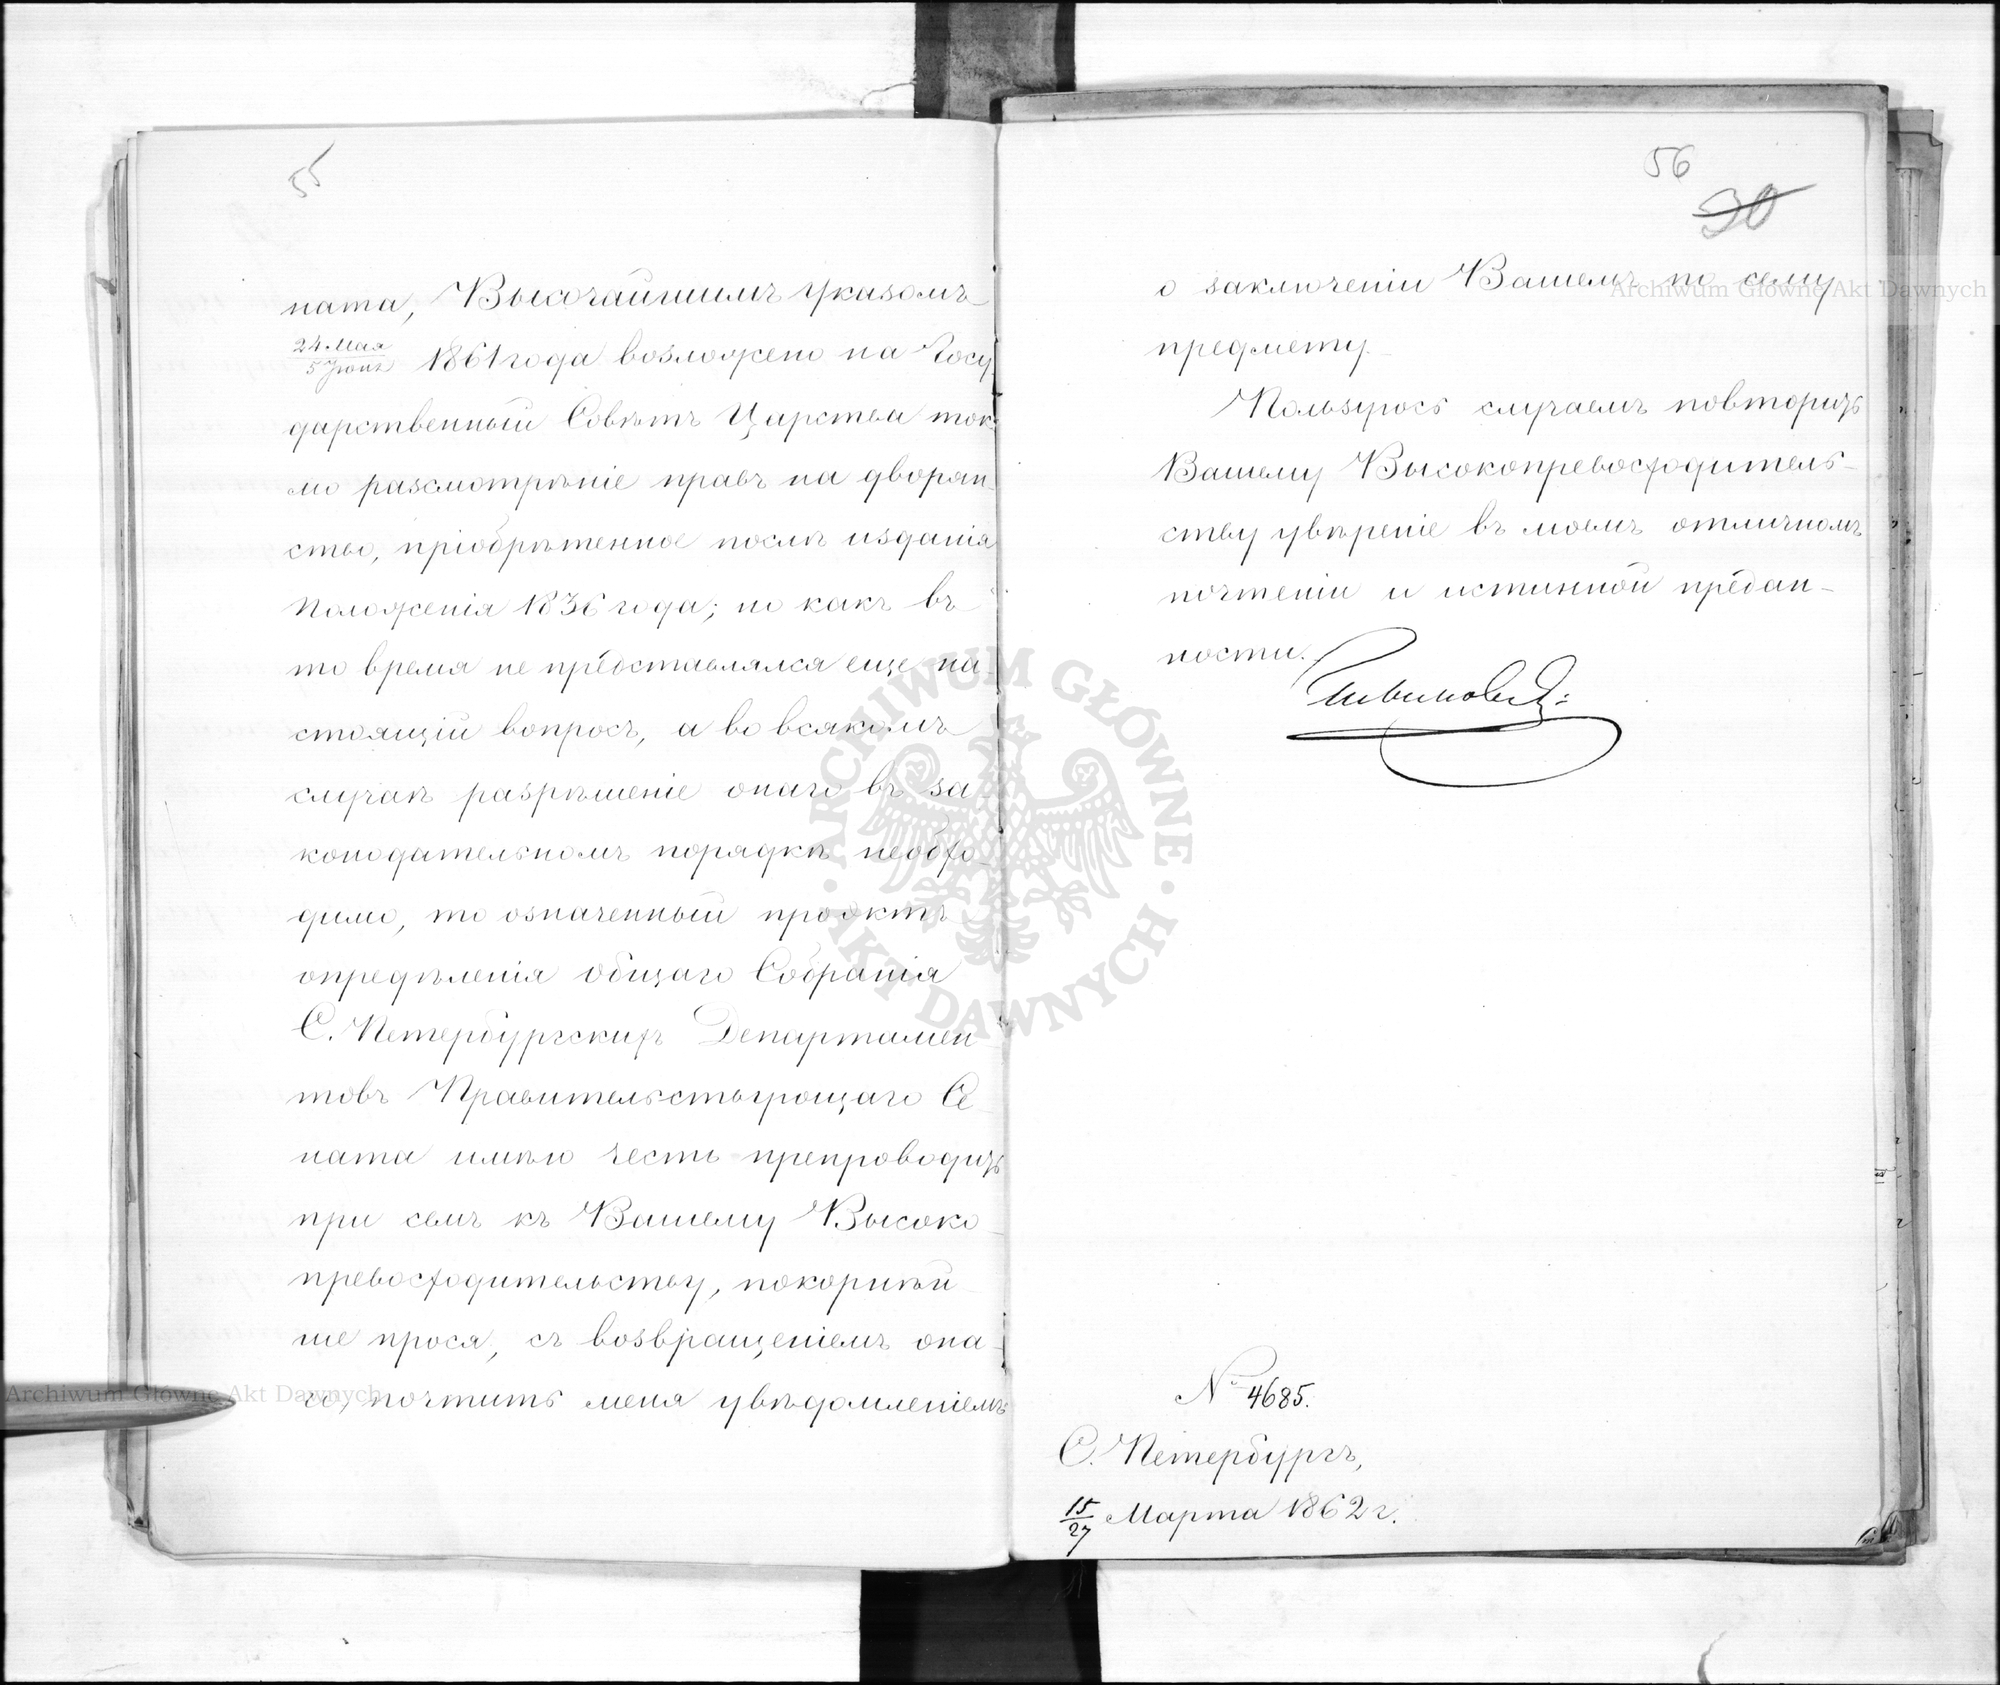 55
ната, Высочайшимъ указомъ
24 Мая / 5 Іюня 1861 года возложено на Госу
дарственный Совѣтъ Царства ток
мо разсмотрѣніе правъ на дворян
ство, пріобрѣтенное послѣ изданія
Положенія 1836 года; но какъ въ
то время не представлялся еще на-
стоящій вопросъ, а во всякомъ
случаѣ разрѣшеніе онаго въ за-
конодательномъ порядкѣ необхо-
димо, то означенный проэктъ
опредѣленія Общаго Собранія
С. Петербургскихъ Департамен
товъ Правительствующаго Се-
ната имѣю честь препроводить
при семъ къ Вашему Высоко-
превосходительству, покорнѣй-
ше прося, съ возвращеніемъ она-
го, почтить меня увѣдомленіемъ
56
90
о заключеніи Вашемъ по сему
предмету.
Пользуюсь случаемъ повторить
Вашему Высокопревосходитель-
ству увѣреніе въ моемъ отличномъ
почтеніи и истинной предан-
ности.
№ 4685.
С. Петербургъ,
15/27 Марта 1862 г.
Archiwum Główne Akt Dawnych
Archiwum Główne Akt Dawnych
ARCHIWUM GŁÓWNE
AKT DAWNYCH